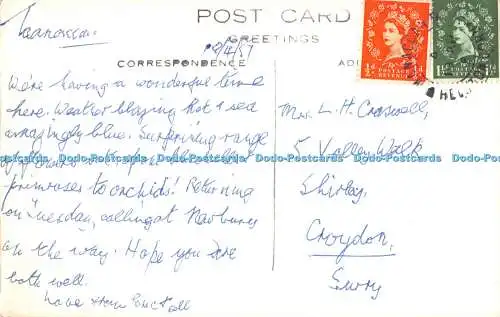 POST CARD
GREETINGS
CORRESPONDENCE
18/4/57
We're having a wonderful time
here. Weather blazing hot & sea
amazingly blue. Surprising range
of flowers
primroses to orchids! Returning
on Tuesday, calling at Newbury
on the way. Hope you are
both well.
Love from
all
Mrs. L. H. Craswell,
5 Valley Walk
Shirley,
Croydon,
Surry
½d
POSTAGE
REVENUE
1½d
POSTAGE
REVENUE
1½d
HEL
Dodo-Postcards Dodo-Postcards Dodo-Postcards Dodo-Postcards